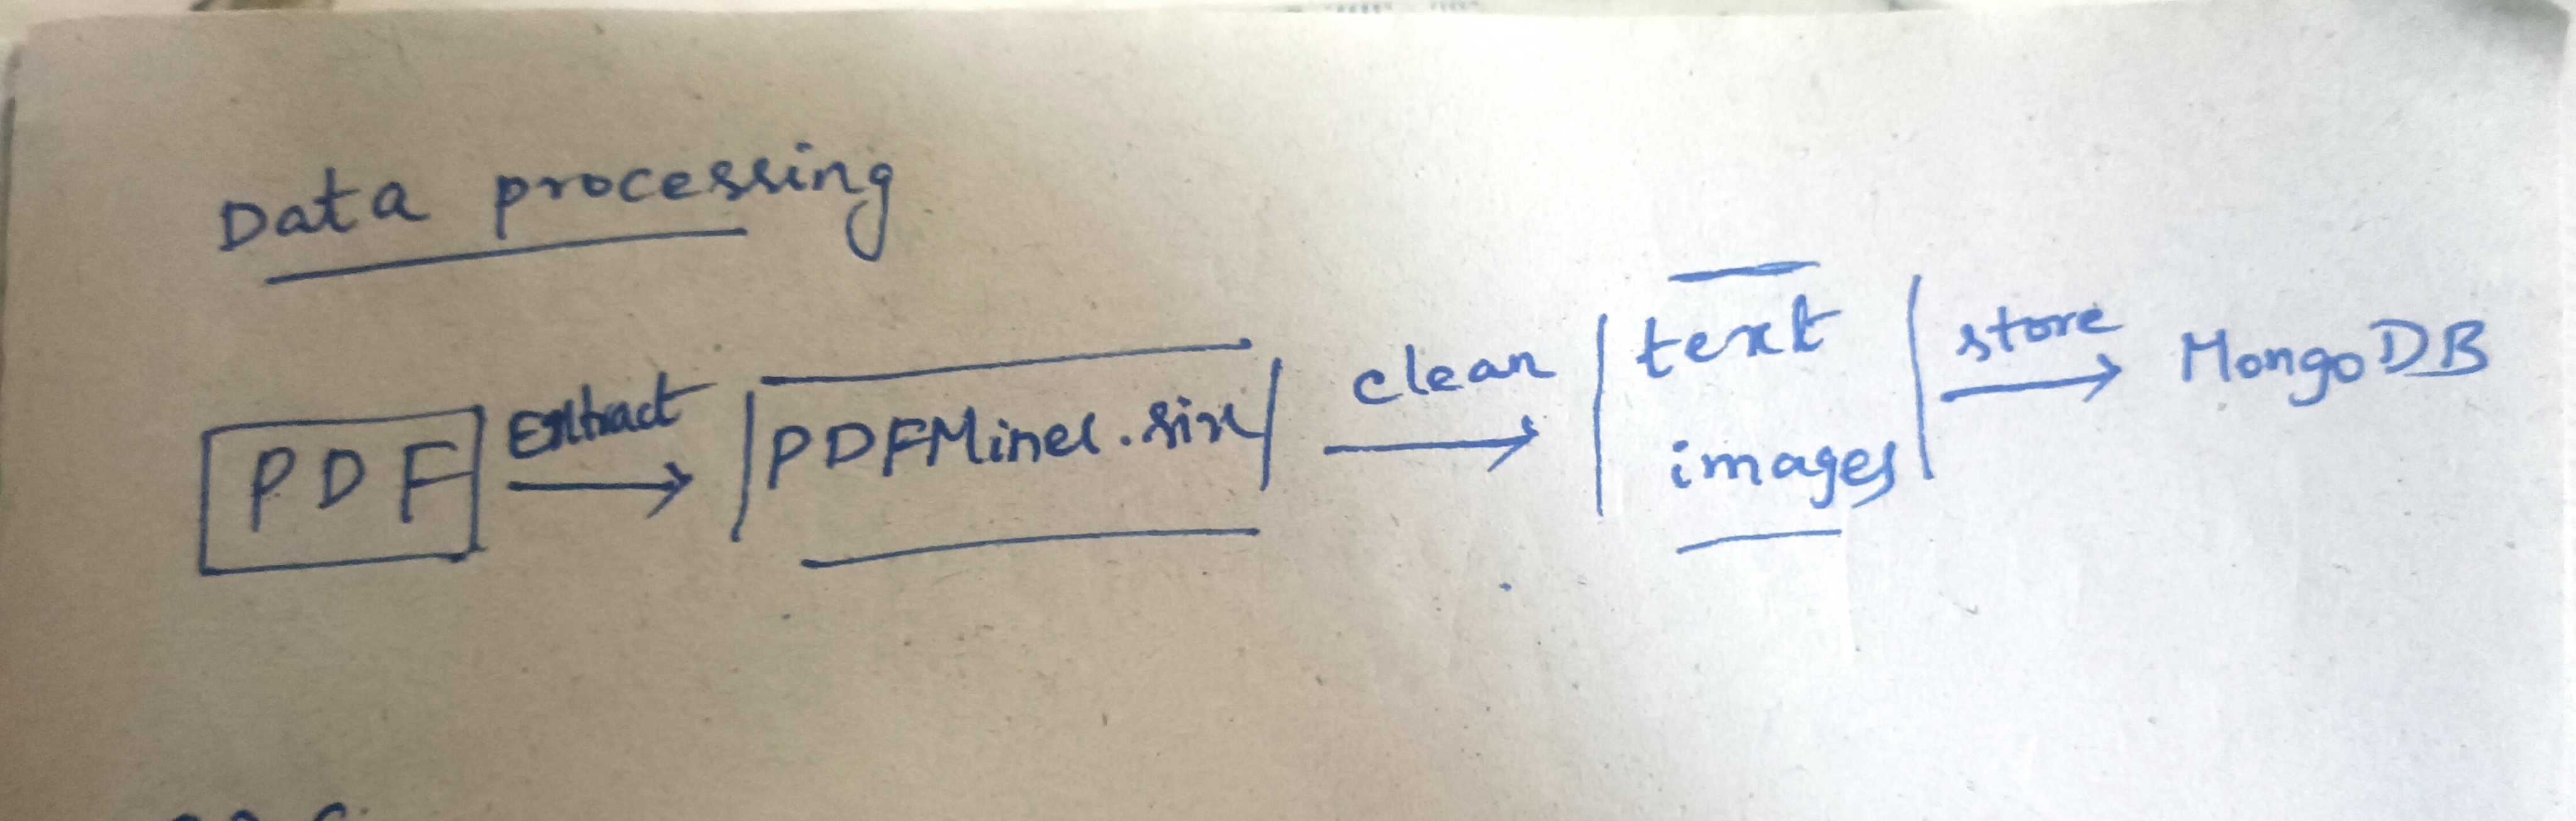 Data processing
PDF Extract PDFMiner.six clean text store MongoDB
images